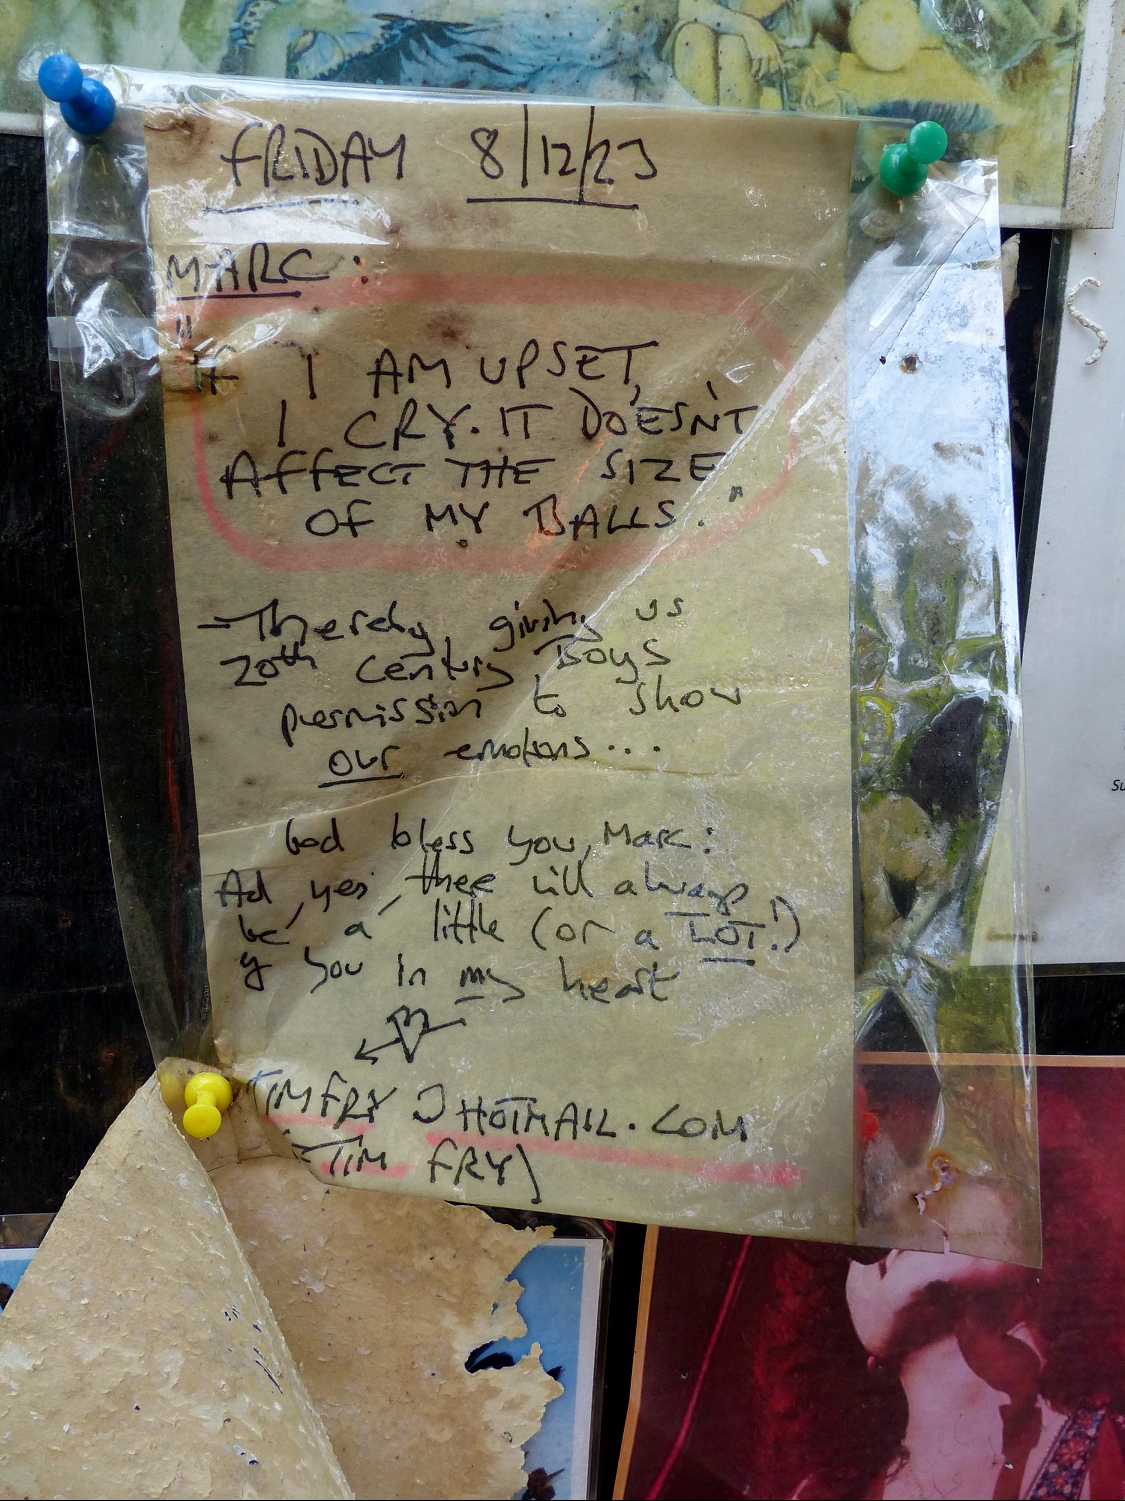 FRIDAY 8/12/23
MARC:
"If I AM UPSET,
I CRY. IT DOESN'T
AFFECT THE SIZE
OF MY BALLS."
- Thereby giving us
20th Century Boys
permission to show
our emotions...
God bless you, Marc:
And, yes, there will always
be a little (or a LOT!)
of you in my heart
TIMFRY @HOTMAIL.COM
(TIM FRY)